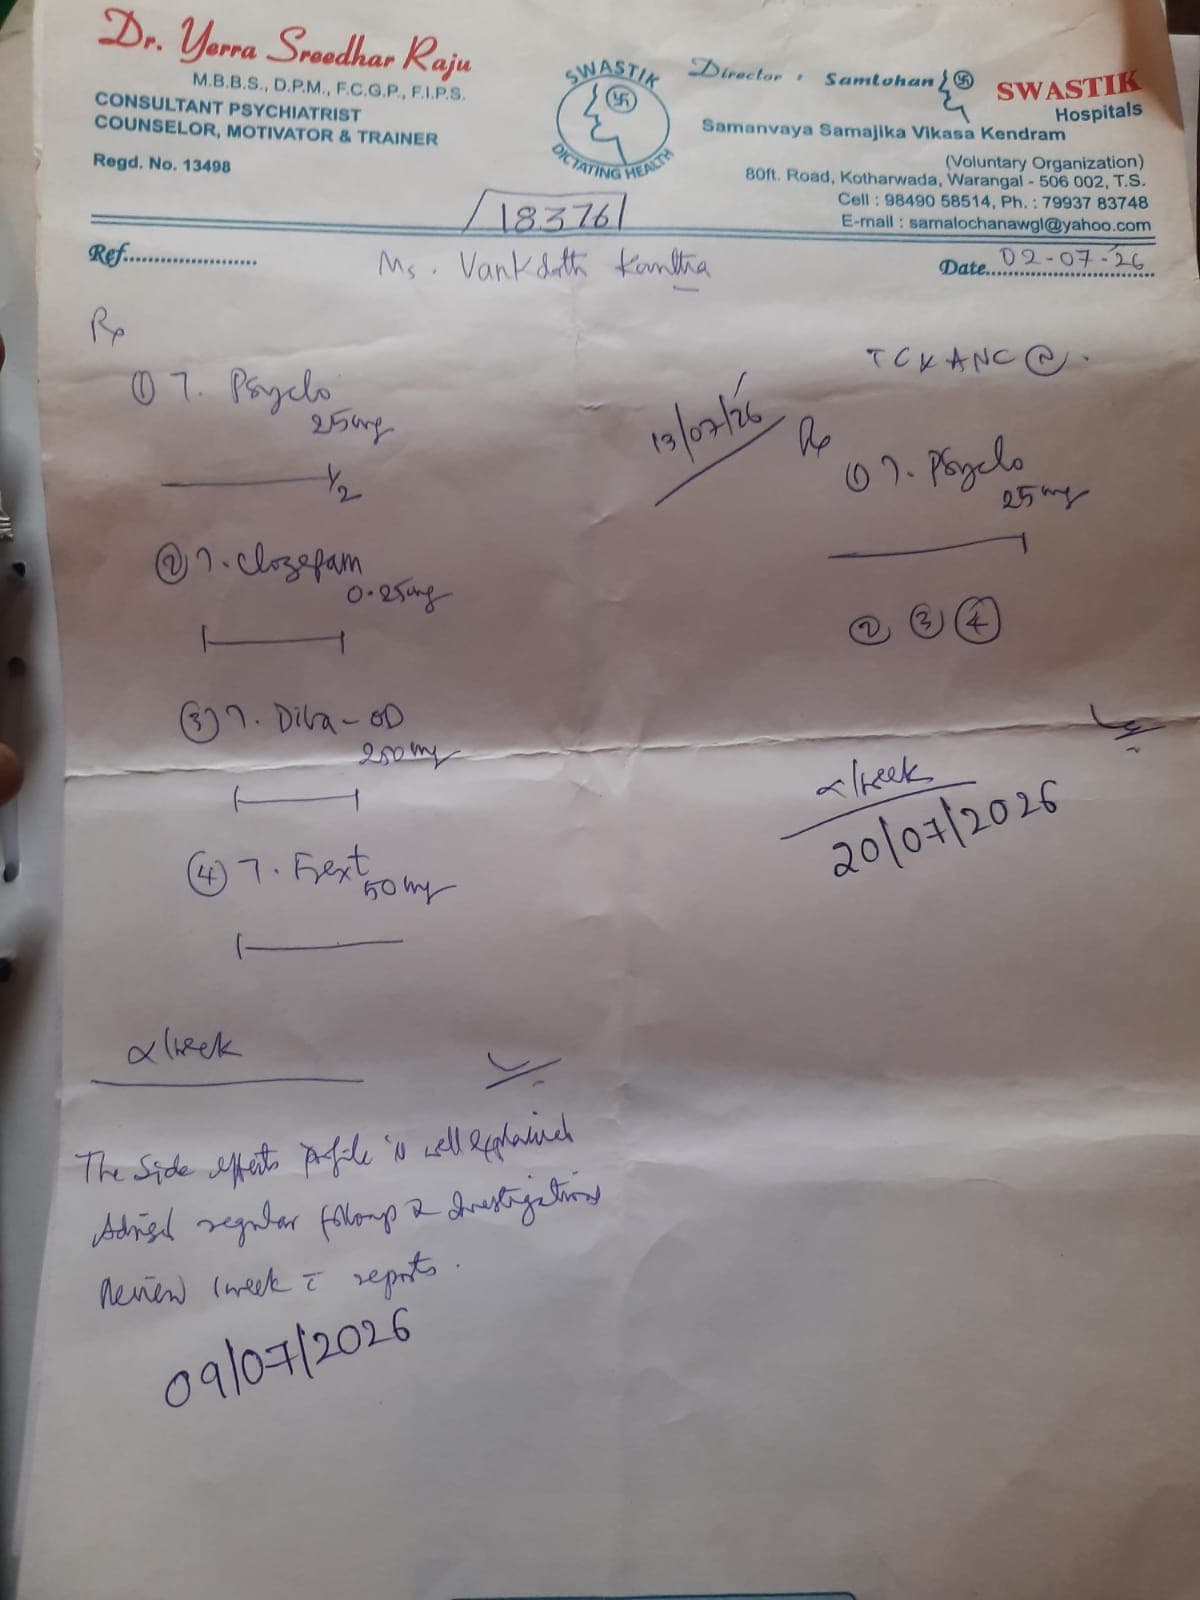 Dr. Yerra Sreedhar Raju
M.B.B.S., D.P.M., F.C.G.P., F.I.P.S.
CONSULTANT PSYCHIATRIST
COUNSELOR, MOTIVATOR & TRAINER
Regd. No. 13498
SWASTIK
DICTATING HEALTH
Director : Samlohan
SWASTIK
Hospitals
Samanvaya Samajika Vikasa Kendram
(Voluntary Organization)
80ft. Road, Kotharwada, Warangal - 506 002, T.S.
Cell : 98490 58514, Ph. : 79937 83748
E-mail : samalochanawgl@yahoo.com
183761
Ref......................
Ms. Vankdoth Kantha
Date... 02-07-26
Rx
① T. Psyclo
25mg
1/2
② T. Clozepam
0.25mg
③ T. Diva-OD
250mg
④ T. 50mg
1week
The Side effects profile is well explained
Advised regular followup & Investigations
Review 1week c reports.
09/07/2026
13/07/26
Rx
① T. Psyclo
25mg
② ③ ④
1week
20/07/2026